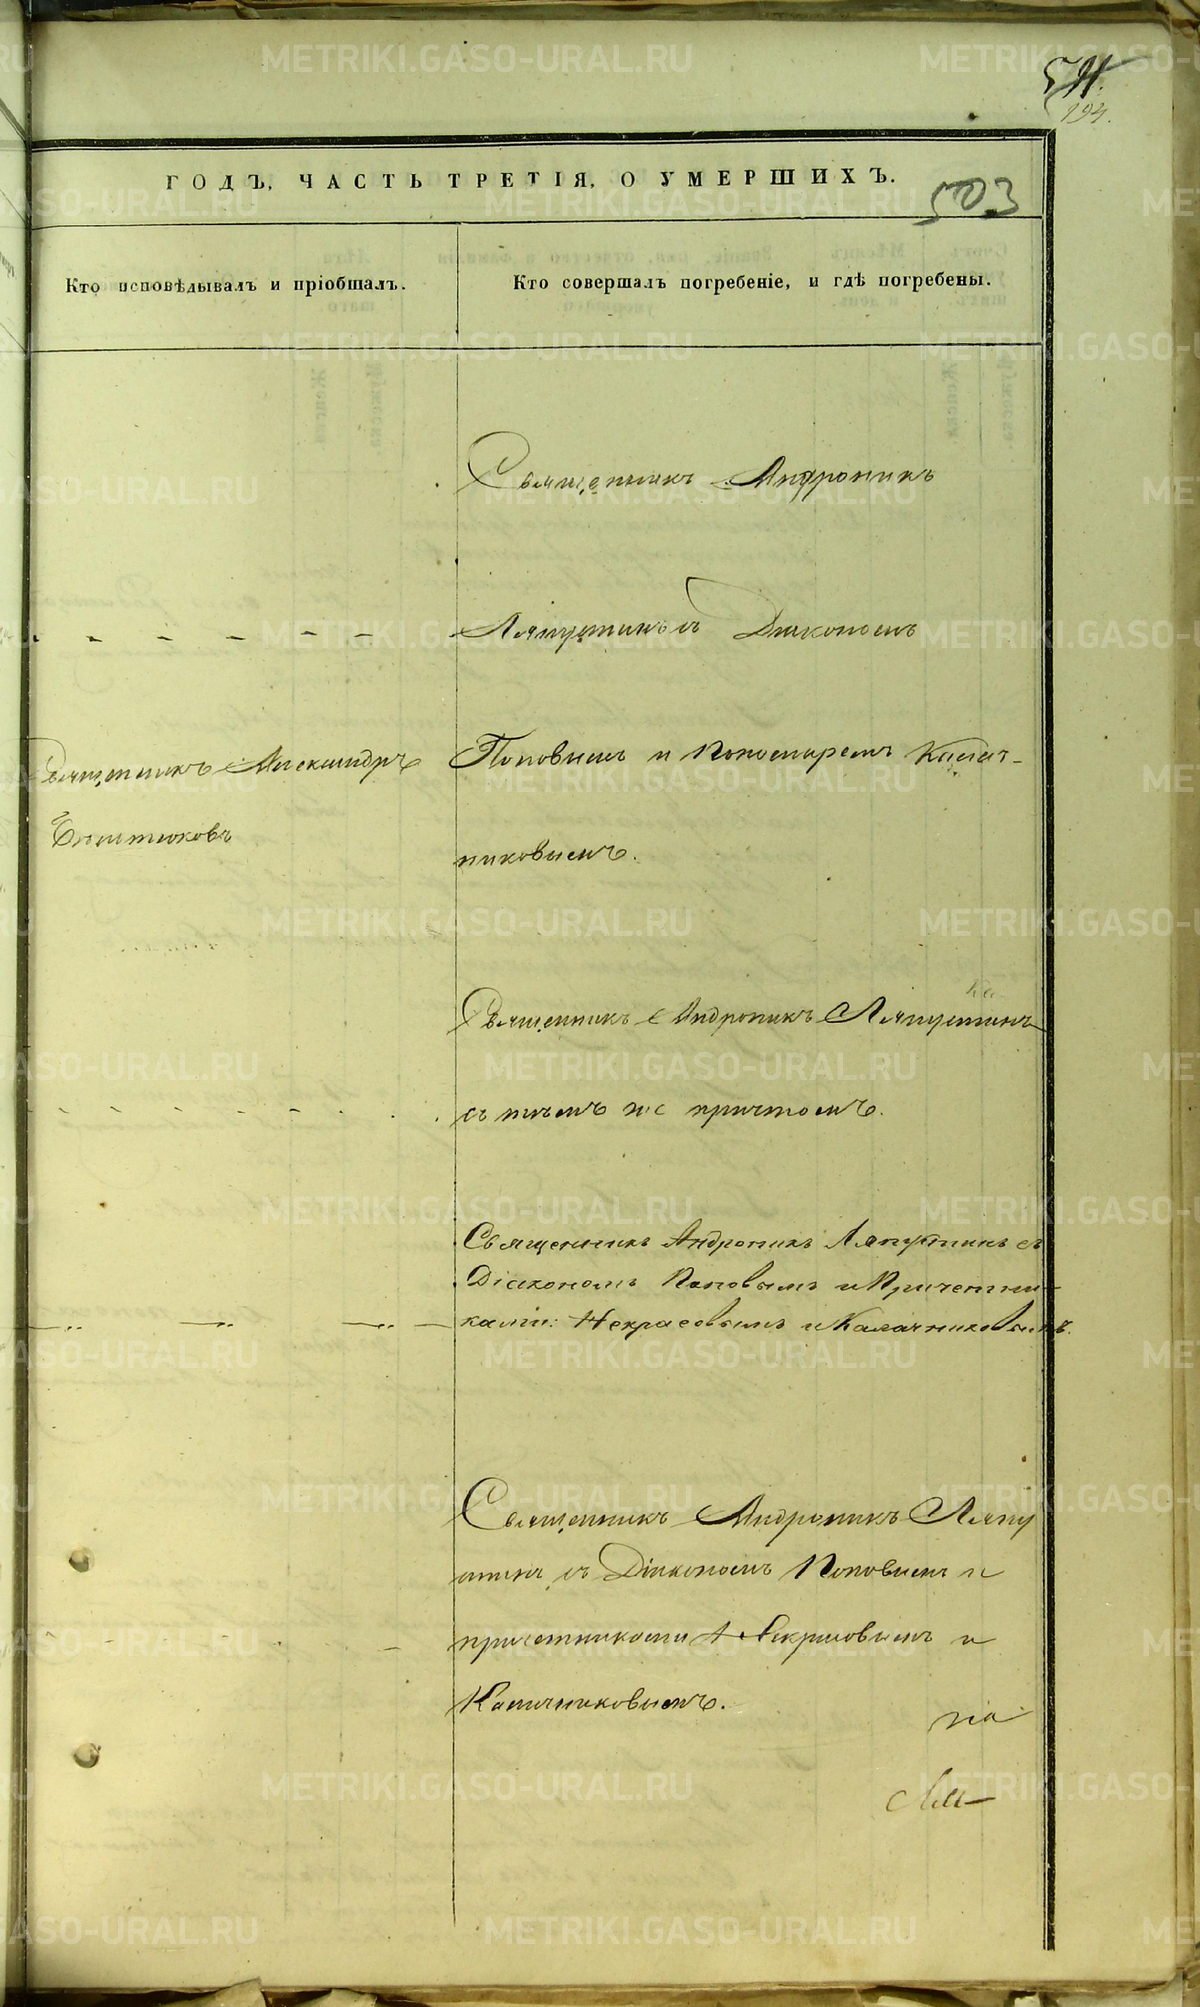 194.
ГОДЪ, ЧАСТЬ ТРЕТІЯ, О УМЕРШИХЪ.
503
Кто исповѣдывалъ и пріобщалъ.
Кто совершалъ погребеніе, и гдѣ погребены.
Священникъ Андроникъ
Ляпустинъ съ Діакономъ
Священникъ Александръ
Поповымъ и Пономаремъ Калач-
никовымъ.
Священникъ Андроникъ Ляпустинъ
съ тѣмъ же причтомъ.
Священникъ Андроникъ Ляпустинъ съ
Діакономъ Поповымъ и Причетни-
ками: Некрасовымъ и Калачниковымъ.
Священникъ Андроникъ Ляпу
стинъ съ Діакономъ Поповымъ и
причетниками Некрасовымъ и
Калачниковымъ.
METRIKI.GASO-URAL.RU